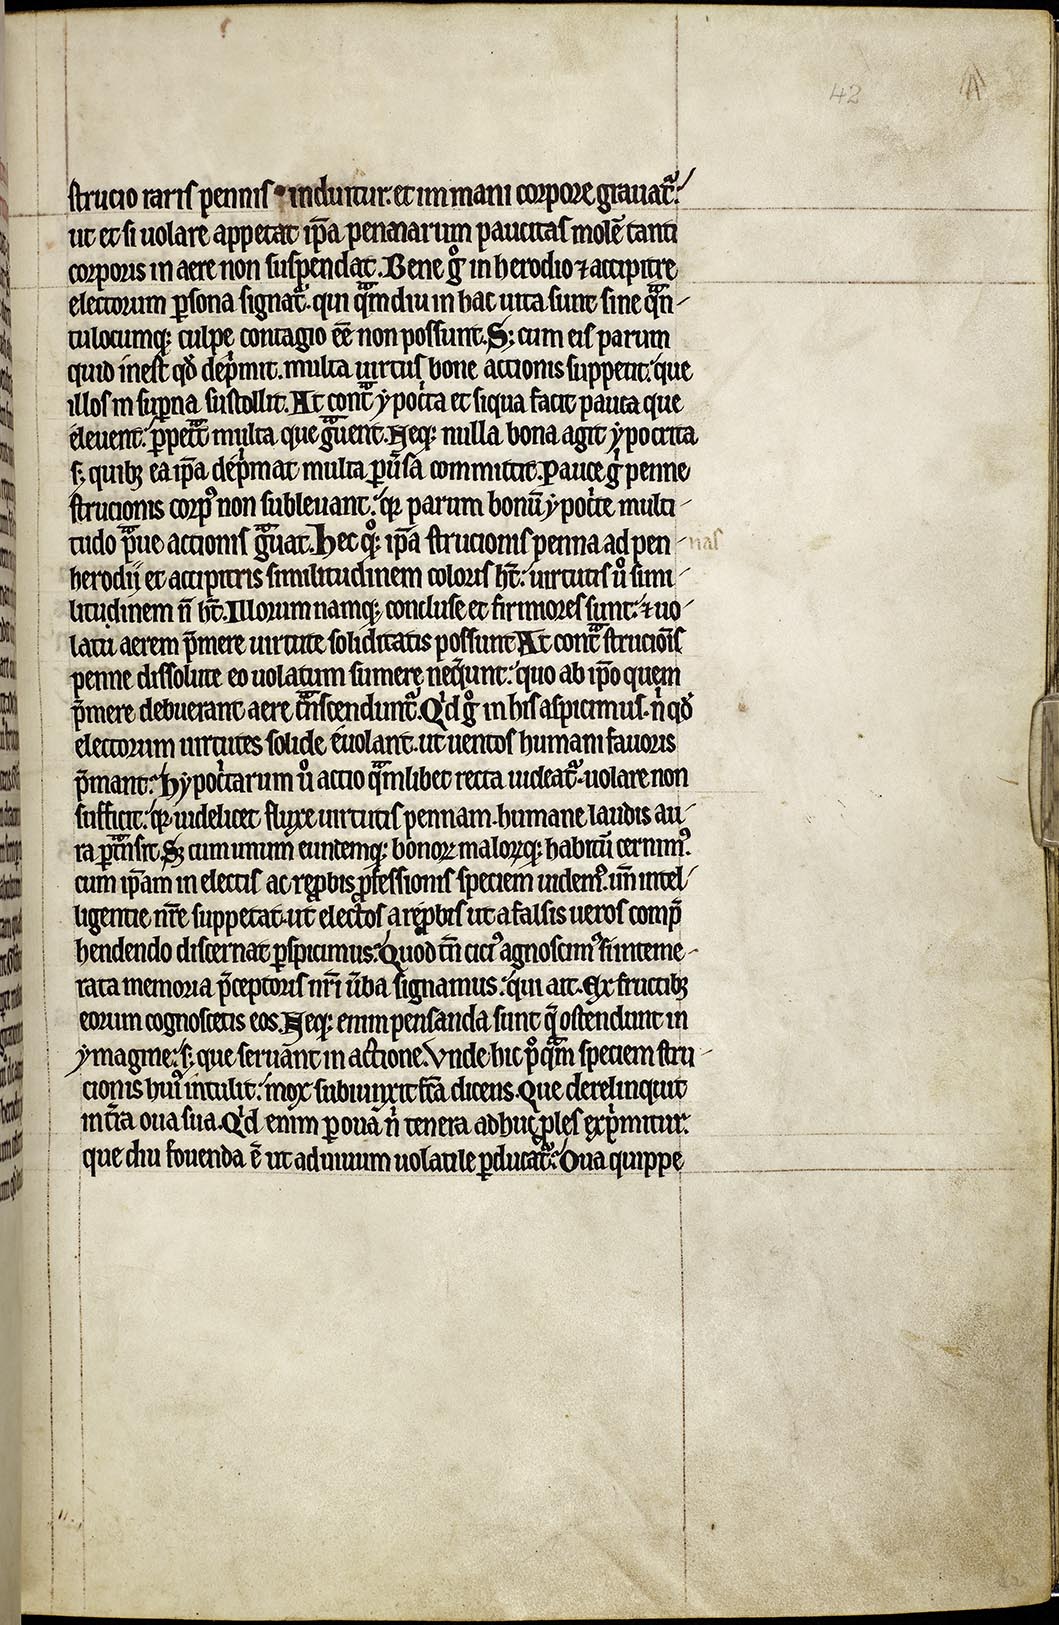 42
strucio raris pennis induitur. et immani corpore grauat᷑.
ut et si uolare appetat ip̄a pennarum paucitas molē tanti
corporis in aere non suspendat. Bene gͦ in herodio ⁊ accipitre
electorum ꝑsona signat᷑. qui qᵃmdiu in hac uita sunt sine qᵃn-
tulocumq; culpe contagio eē non possunt. S; cum eis parum
quid inest qd̓ dep̓mit. multa uirtus bone actionis suppetit. que
illos in suꝑna sustollit. At contᵃ ypoc̓ta et siqua facit pauca que
eleuent. ꝑpetᵃt multa que gᵃuent. Neq; nulla bona agit ypocrita
s; quibꝫ ea ip̄a dep̓mat multa ꝑuersa committit. Pauce gͥ penne
strucionis corpꝰ non subleuant. qꝛ parum bonū ypoc̓te multi-
tudo pᵃue actionis gᵃuat. Hec qͦq; ip̄a strucionis penna ad pen-nas
herodij et accipitris similitudinem coloris ht̄. uirtutis uͦ simi-
litudinem n̄ ht̄. Illorum namq; concluse et firmiores sunt. ⁊ uo-
latu aerem p̄mere uirtute soliditatis possunt. At contᵃ strucioīs
penne dissolute eo uolatum sumere neq̄unt. quo ab ip̄o quem
p̄mere debuerant aere tᵃnscendunt᷑. Qͥd gͦ in his aspicimus. nͥ qd̓
electorum uirtutes solide euolant. ut uentos humani fauoris
p̄mant. Hypoc̓tarum uͦ actio qᵃmlibet recta uideat᷑. uolare non
sufficit. qꝛ uidelicet fluxe uirtutis pennam. humane laudis au-
ra ꝑtᵃnsit. Sꝫ cum unum eundemq; bonoꝝ maloꝝq; habitū cernimꝰ.
cum ip̄am in electis ac reꝓbis ꝓfessionis speciem uidemꝰ. un̄ intel-
ligentie nr̄e suppetat. ut electos a reꝓbis ut a falsis ueros comp̄
hendendo discernat ꝑspicimus. Quod tn̄ citiꝰ agnoscimꝰ. si inteme-
rata memoria p̄ceptoris nr̄i ūba signamus. qui ait. Ex fructibꝫ
eorum cognoscetis eos. Neq; enim pensanda sunt q̄ ostendunt in
ymagine. s; que seruant in actione. Vnde hic pͦqᵃm speciem stru-
cionis huiꝰ intulit. mox subiunxit fc̄a dicens. Que derelinquit
in tr̄a oua sua. Qͥd enim ꝑ oua nͥ tenera adhuc ꝓles exp̓mitur.
que diu fouenda ē ut ad uiuum uolatile ꝑducat᷑. Oua quippe